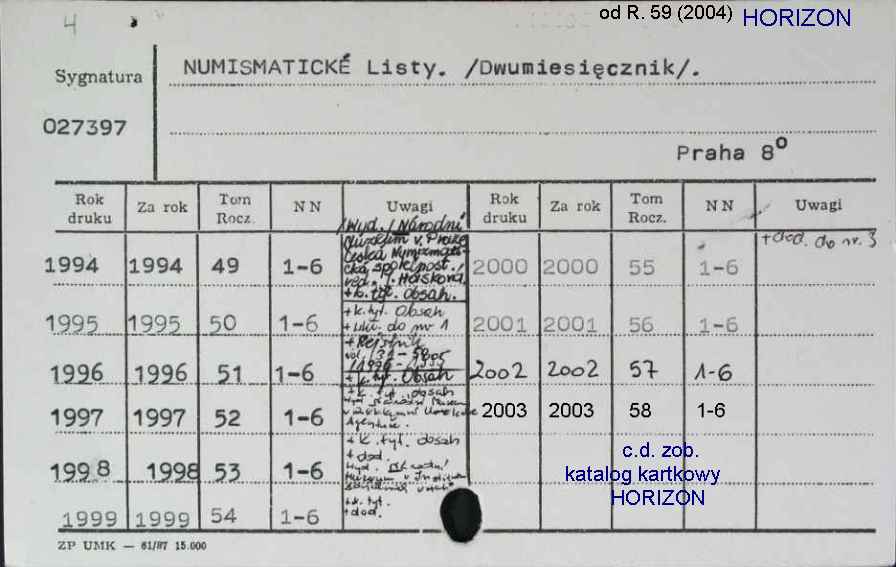 4
od R. 59 (2004) HORIZON
Sygnatura
NUMISMATICKÉ Listy. /Dwumiesięcznik/.
027397
Praha 8o
Rok druku Za rok Tom Rocz. NN Uwagi Rok druku Za rok Tom Rocz. NN Uwagi
/Wyd./ Národní
+dod. do nr. 3
1994 1994 49 1-6 2000 2000 55 1-6
+k. tyt. Obsah.
+k.tyt. Obsah
1995 1995 50 1-6 do nr 1 2001 2001 56 1-6
+ Rejstřík
1996 1996 51 1-6 + k. tyt. Obsah 2002 2002 57 1-6
+ k. tyt. obsah
1997 1997 52 1-6 2003 2003 58 1-6
+ k. tyt. obsah
+ dod.
c.d. zob.
1998 1998 53 1-6 katalog kartkowy
HORIZON
+k. tyt.
1999 1999 54 1-6 +dod.
ZP UMK — 61/87 15.000